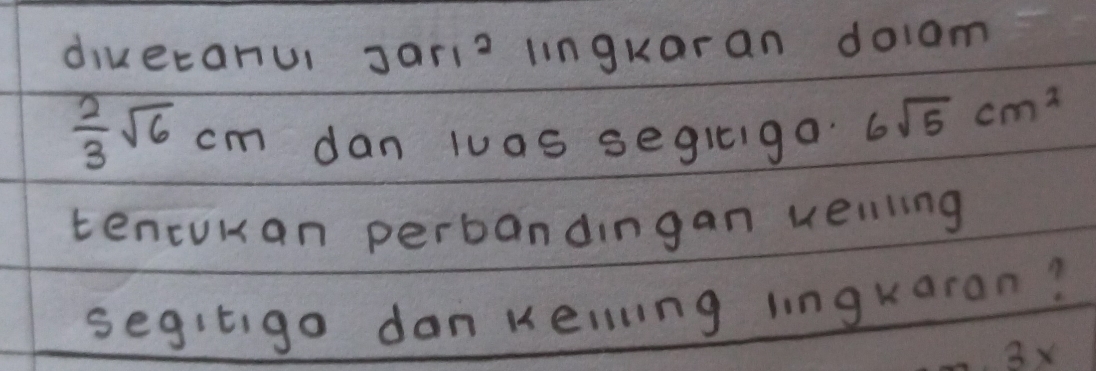 diketahui Jari² lingkaran dalam
2/3 √6 cm dan luas segitiga. 6√5 cm²
tentukan perbandingan keliling
segitiga dan keliling lingkaran?
3x